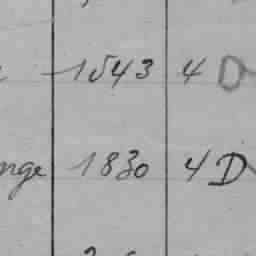 1543 4 D
nge 1830 4 D